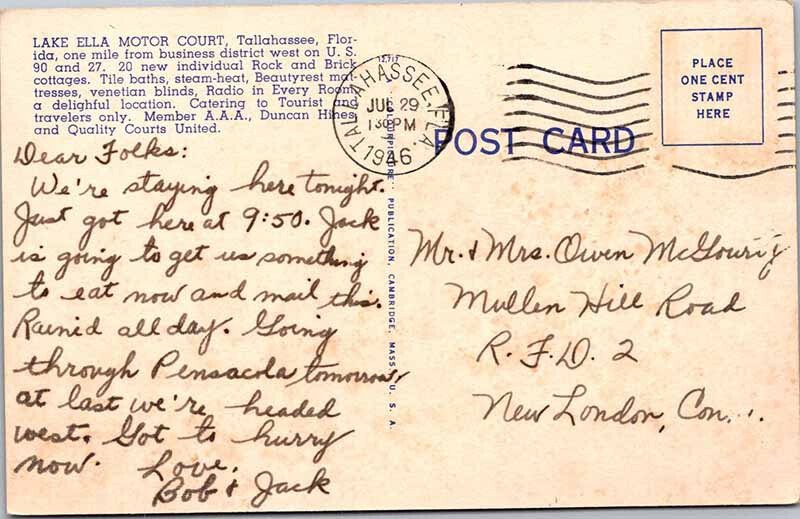 LAKE ELLA MOTOR COURT, Tallahassee, Flor-
ida, one mile from business district west on U. S.
90 and 27. 20 new individual Rock and Brick
cottages. Tile baths, steam-heat, Beautyrest mat-
tresses, venetian blinds, Radio in Every Room,
a delighful location. Catering to Tourist and
travelers only. Member A.A.A., Duncan Hines,
and Quality Courts United.
Dear Folks:
We're staying here tonight.
Just got here at 9:50. Jack
is going to get us something
to eat now and mail this.
Rained all day. Going
through Pensacola tomorrow
at last we're headed
west. Got to hurry
now. Love,
Bob & Jack
TALLAHASSEE, FLA.
JUL 29
1 30 PM
1946
PUBLICATION, CAMBRIDGE, MASS., U. S. A.
POST CARD
PLACE
ONE CENT
STAMP
HERE
Mr. & Mrs. Owen
Mullen Hill Road
R. F. D. 2
New London, Con...